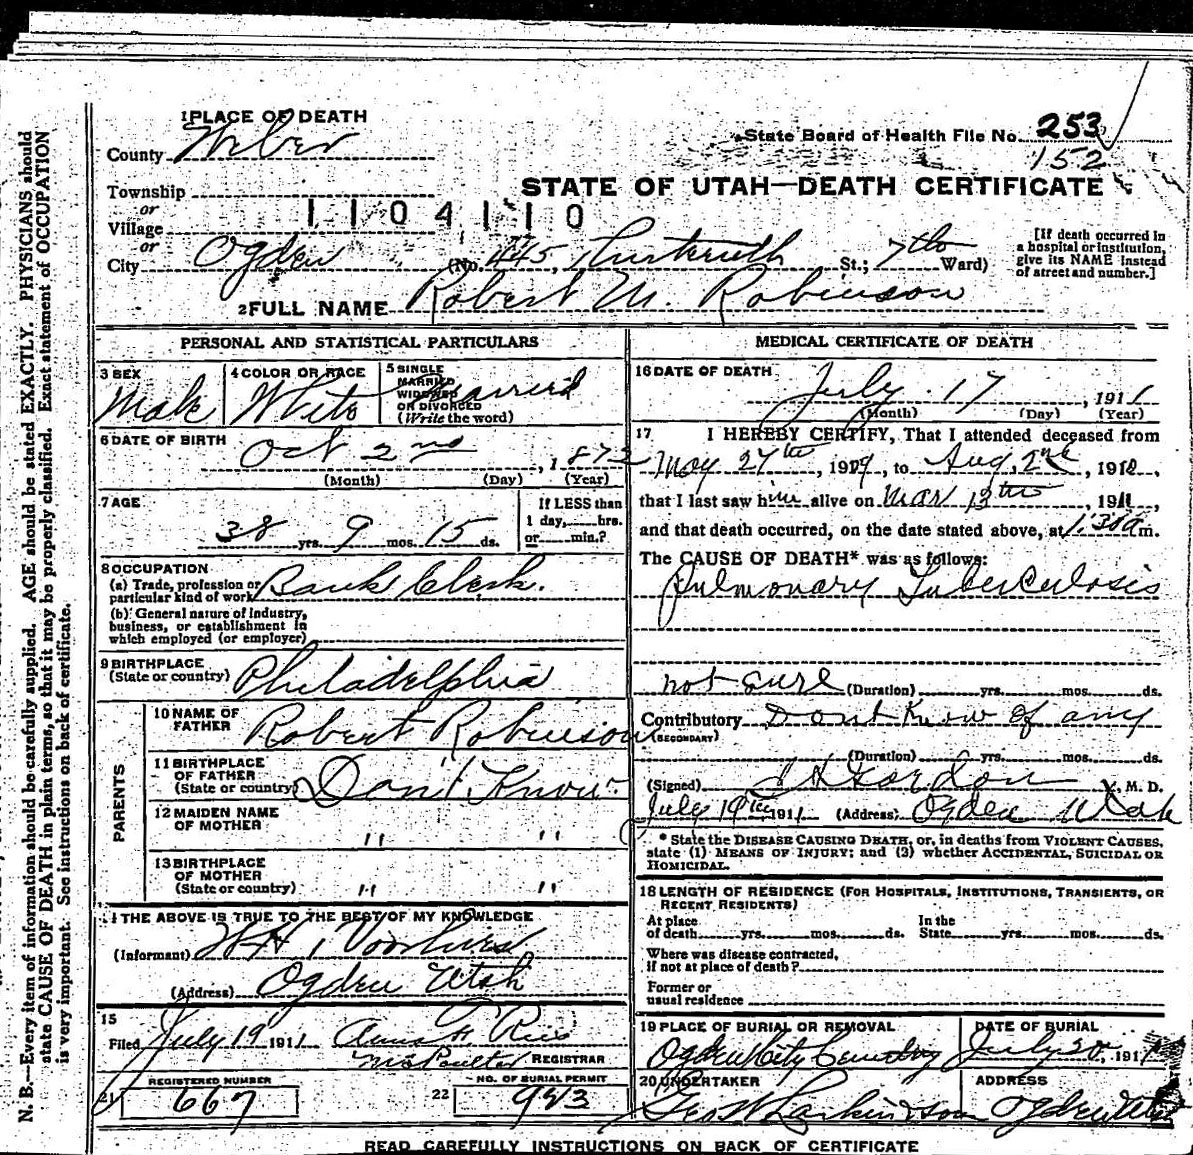 1 PLACE OF DEATH
County Weber
State Board of Health File No. 253
152
Township
or
Village
1104110
or
STATE OF UTAH—DEATH CERTIFICATE
City Ogden (No. 445, Thirteenth St.; 7th Ward)
[If death occurred in a hospital or institution, give its NAME instead of street and number.]
2 FULL NAME Robert M. Robinson
PERSONAL AND STATISTICAL PARTICULARS
3 SEX Male
4 COLOR OR RACE White
5 SINGLE MARRIED WIDOWED OR DIVORCED (Write the word) Married
6 DATE OF BIRTH Oct 2nd, 1872
(Month) (Day) (Year)
7 AGE 38 yrs. 9 mos. 15 ds.
If LESS than 1 day, hrs. or min.?
8 OCCUPATION
(a) Trade, profession or particular kind of work Bank Clerk.
(b) General nature of industry, business, or establishment in which employed (or employer)
9 BIRTHPLACE (State or country) Philadelphia
PARENTS
10 NAME OF FATHER Robert Robinson
11 BIRTHPLACE OF FATHER (State or country) Don't Know.
12 MAIDEN NAME OF MOTHER " "
13 BIRTHPLACE OF MOTHER (State or country) " "
THE ABOVE IS TRUE TO THE BEST OF MY KNOWLEDGE
(Informant) W H Voorhies
(Address) Ogden Utah
15
Filed July 19 1911
REGISTRAR
REGISTERED NUMBER
21 667
NO. OF BURIAL PERMIT
22 993
MEDICAL CERTIFICATE OF DEATH
16 DATE OF DEATH July 17, 1911
(Month) (Day) (Year)
17 I HEREBY CERTIFY, That I attended deceased from
May 27th, 1909, to Aug. 2nd, 1910,
that I last saw him alive on Mar 13th, 1911,
and that death occurred, on the date stated above, at 1:30 a m.
The CAUSE OF DEATH* was as follows:
Pulmonary Tuberculosis
not sure (Duration) yrs. mos. ds.
Contributory Dont Know of any
(SECONDARY)
(Duration) yrs. mos. ds.
(Signed) Gordon, M. D.
July 19th, 1911 (Address) Ogden Utah
* State the DISEASE CAUSING DEATH, or, in deaths from VIOLENT CAUSES, state (1) MEANS OF INJURY; and (2) whether ACCIDENTAL, SUICIDAL OR HOMICIDAL.
18 LENGTH OF RESIDENCE (FOR HOSPITALS, INSTITUTIONS, TRANSIENTS, OR RECENT RESIDENTS)
At place of death yrs. mos. ds. In the State yrs. mos. ds.
Where was disease contracted, if not at place of death?
Former or usual residence
19 PLACE OF BURIAL OR REMOVAL Ogden City Cemetery
DATE OF BURIAL July 20, 1911
20 UNDERTAKER Geo W Larkin & Son
ADDRESS Ogden Utah
READ CAREFULLY INSTRUCTIONS ON BACK OF CERTIFICATE
N. B.—Every item of information should be carefully supplied. AGE should be stated EXACTLY. PHYSICIANS should
state CAUSE OF DEATH in plain terms, so that it may be properly classified. Exact statement of OCCUPATION
is very important. See instructions on back of certificate.